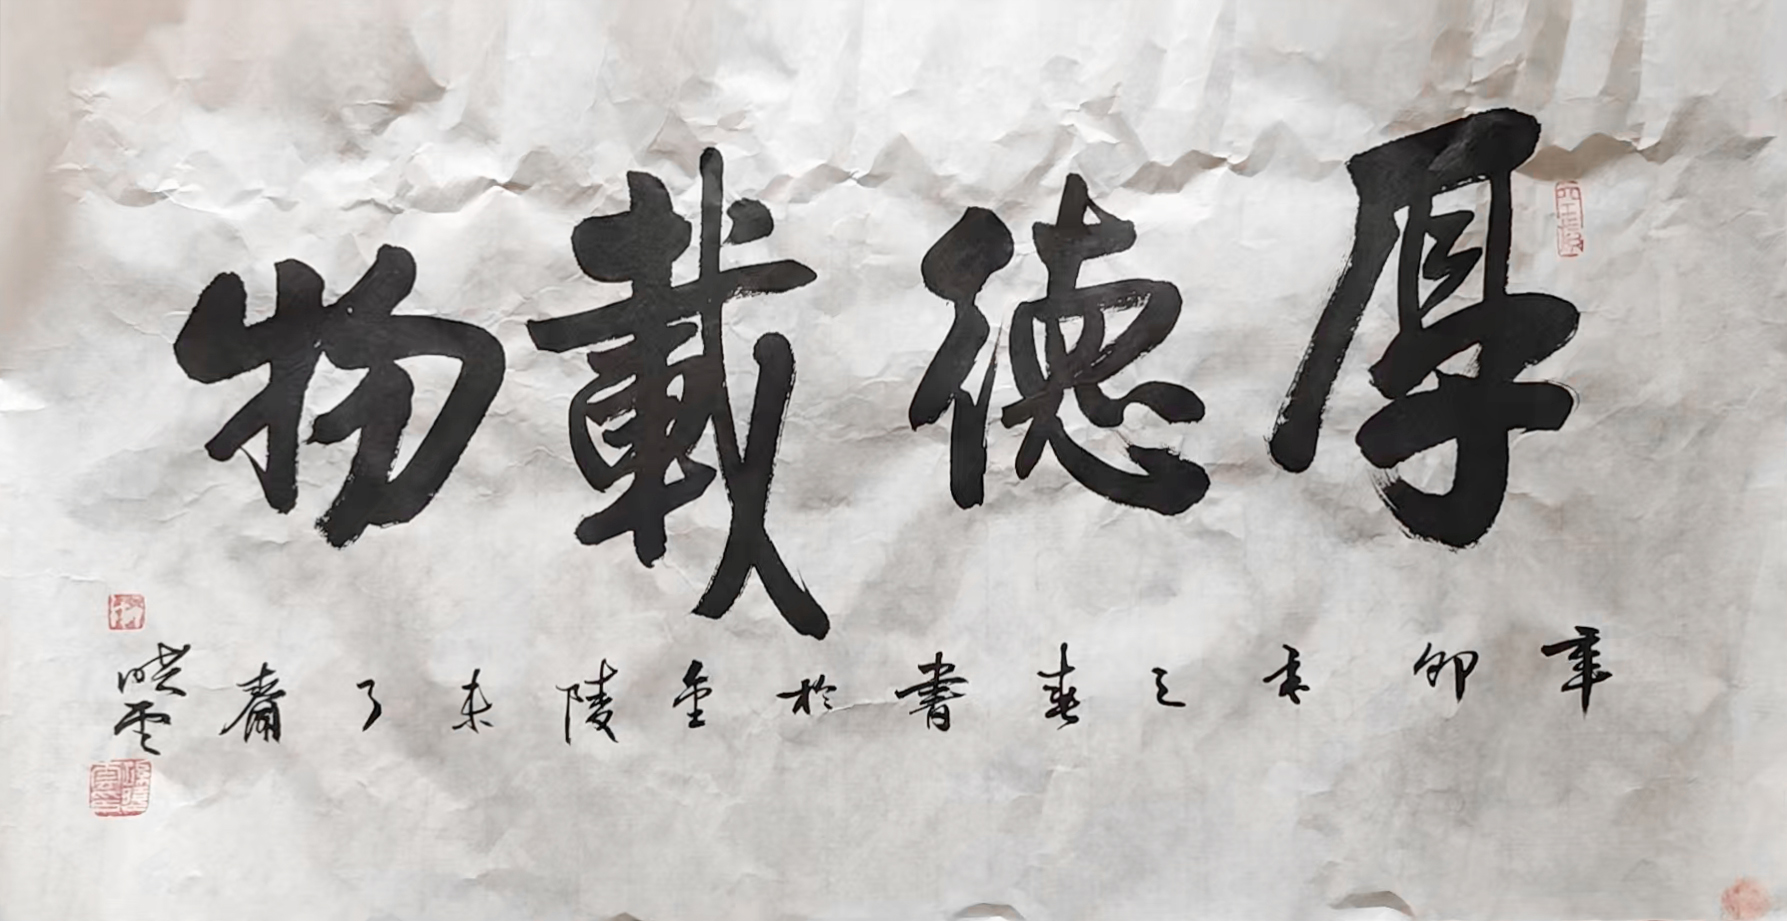 厚德載物
辛卯年之春書於金陵未了齋
曉雲